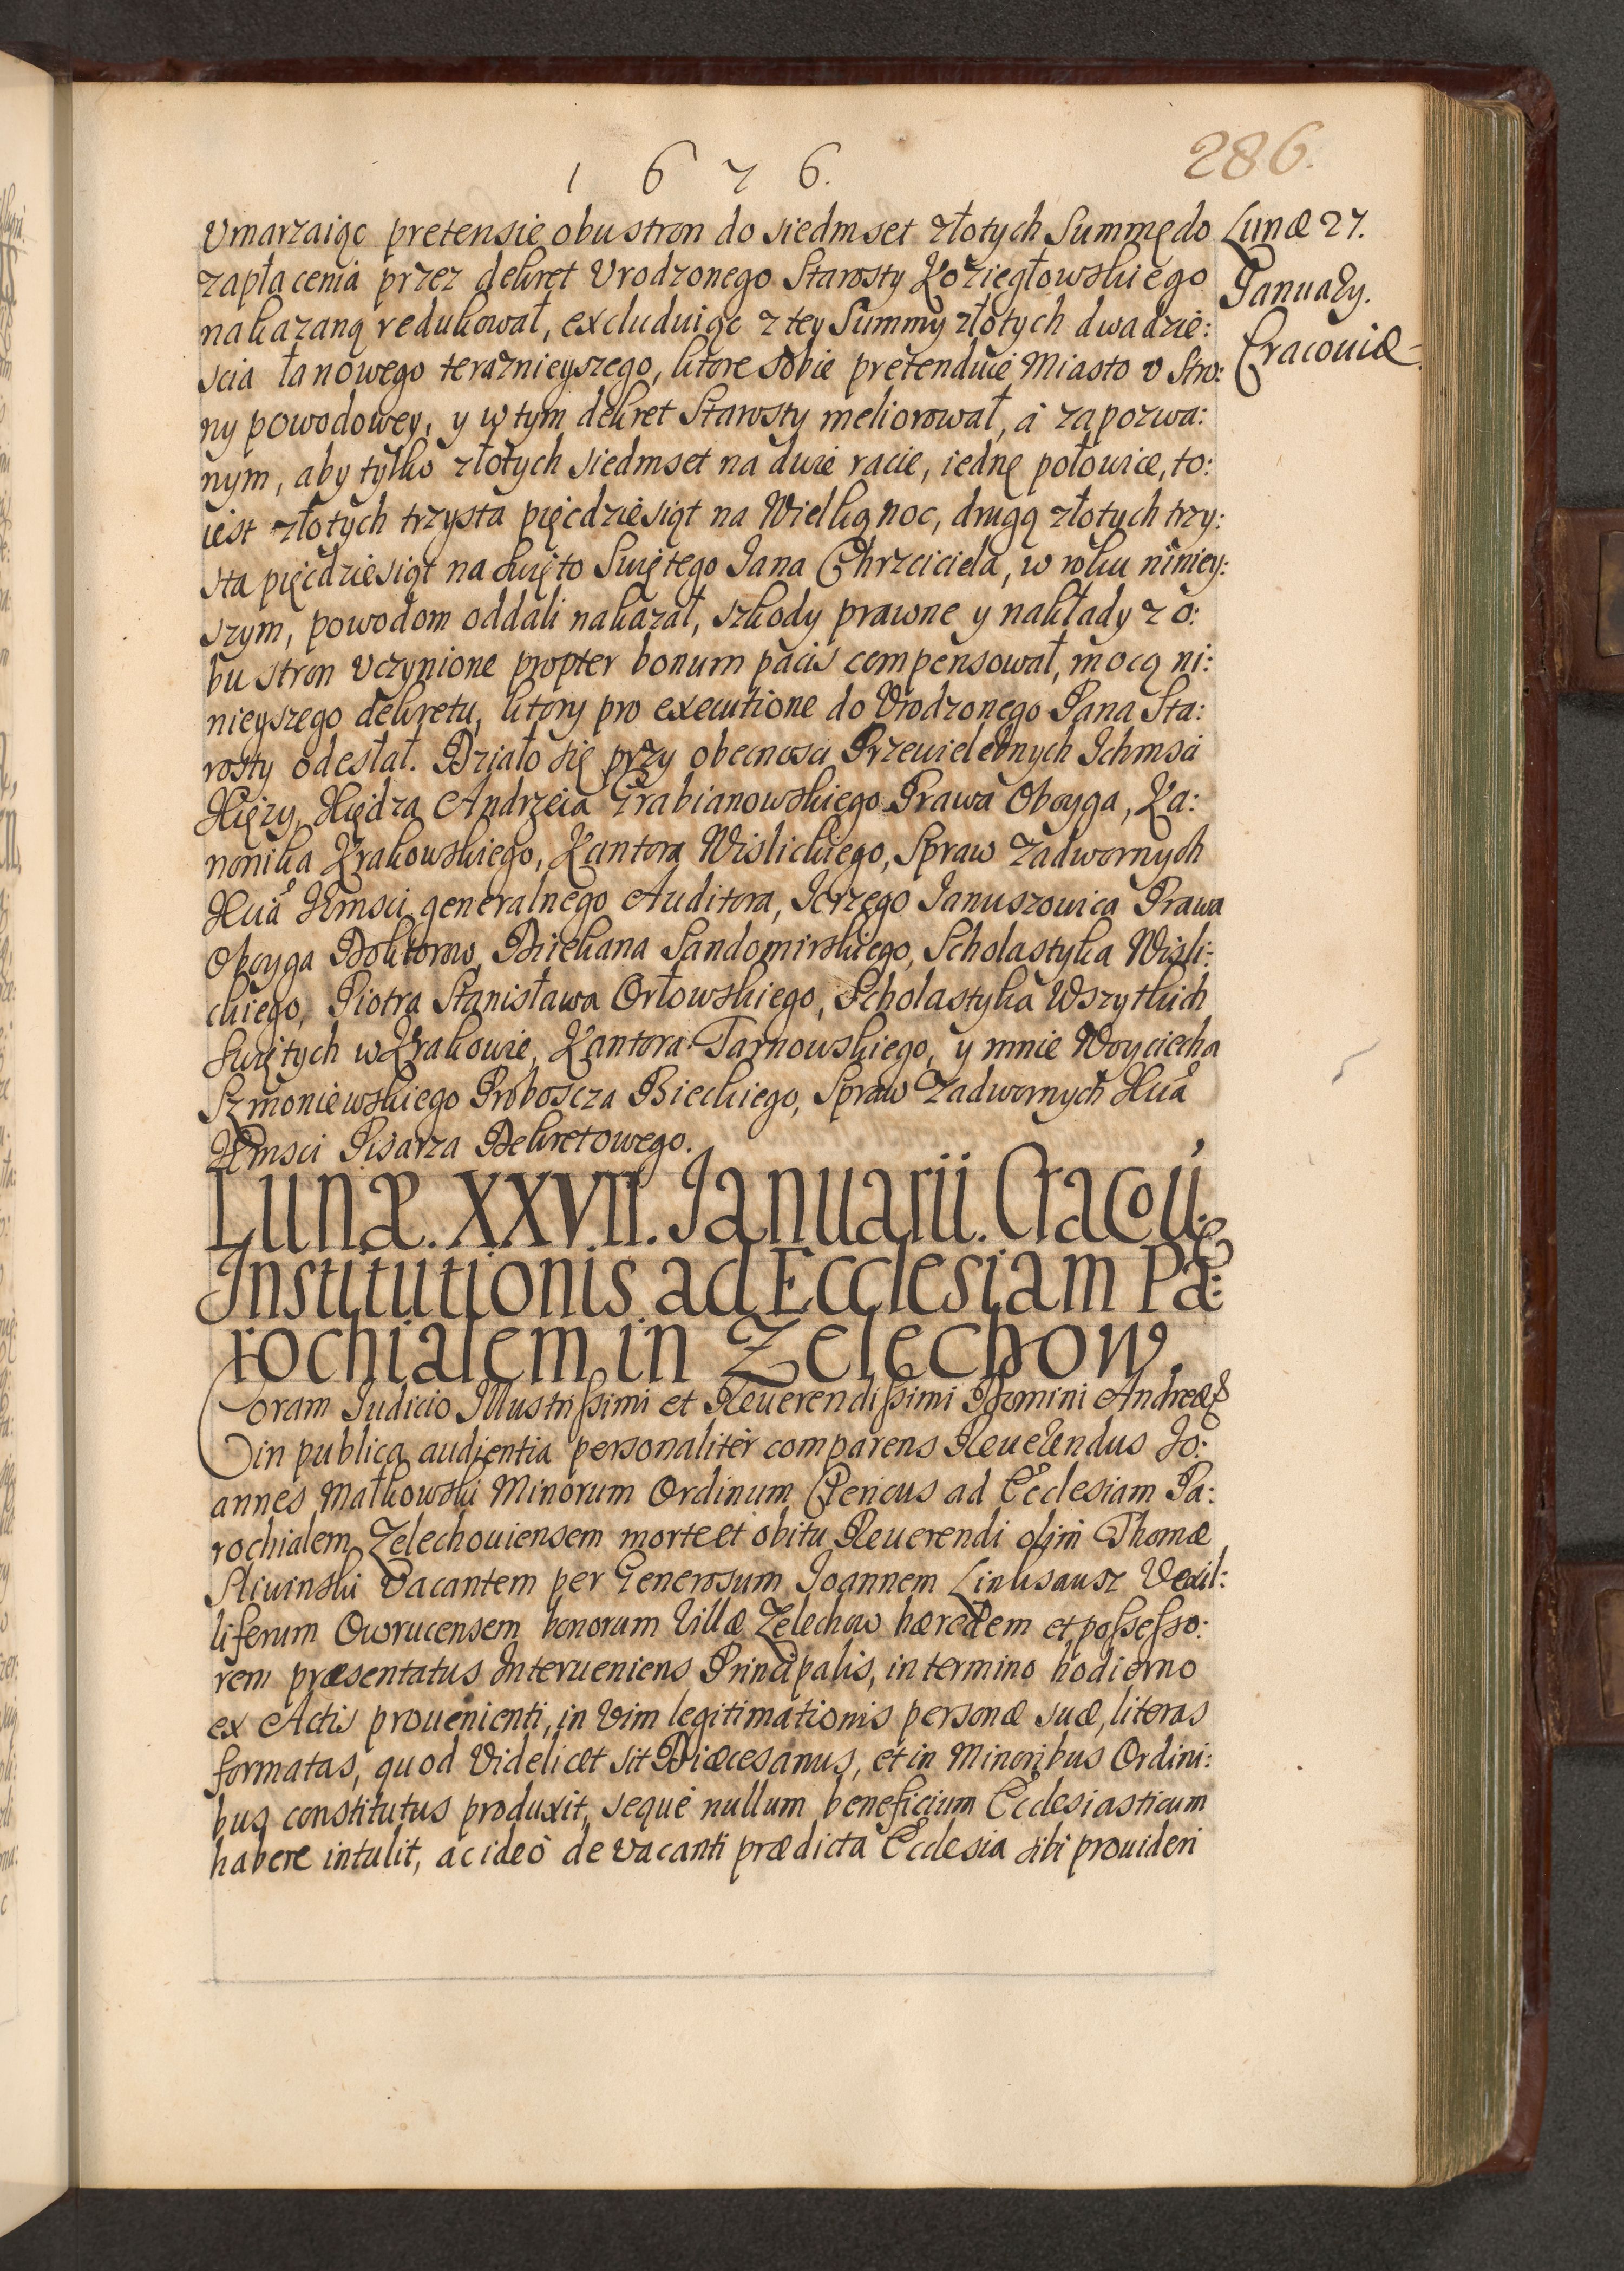 1 6 7 6.
286.
Vmarzaiąc pretensie obustron do siedmset złotych Summę do
zapłacenia przez dekret Vrodzonego Starosty Koziegłowskiego
nakazaną redukował, excluduiąc z tey Summy złotych dwadzie:
scia łanowego teraznieyszego, ktore sobie pretenduie Miasto v Stro:
ny powodowey, y w tym dekret Starosty meliorował, a zapozwa:
nym, aby tylko złotych siedmset na dwie racie, iednę połowicę, to:
iest złotych trzysta pięcdziesiąt na Wielkąnoc, drugą złotych trzy:
sta pięcdziesiąt na swięto Swiętego Jana Chrzciciela, w roku niniey:
szym, powodom oddali nakazał, szkody prawne y nakłady z o:
bu stron vczynione propter bonum pacis compensował, mocą ni:
nieyszego dekretu, ktory pro executione do Vrodzonego Pana Sta:
rosty odesłał. Działo się przy obecnosci Przewielebnych Ichmsci
Xięży, Xiędza Andrzeia Grabianowskiego Prawa Oboyga, Ka:
nonika Krakowskiego, Kantora Wislickiego, Spraw Zadwornych
Xcia Jemsci generalnego Auditora, Jerzego Januszowica Prawa
Oboyga Doktorow, Dziekana Sandomirskiego, Scholastyka Wisli:
ckiego, Piotra Stanisława Orłowskiego, Scholastyka Wszytkich
Swiętych w Krakowie, Kantora Tarnowskiego, y mnie Woyciecha
Szmoniewskiego Proboscza Bieckiego, Spraw Zadwornych Xcia
Jemsci Pisarza Dekretowego.
Lunæ 27.
Januarÿ.
Cracouiæ
Lunæ. XXVII. Januarii. Cracouiæ.
Institutionis ad Ecclesiam Pa:
rochialem in Zelechow.
Coram Iudicio Illustrissimi et Reuerendissimi Domini Andreæ &
in publica audientia personaliter comparens Reuerendus Jo:
annes Małkowski Minorum Ordinum Clericus ad Ecclesiam Pa:
rochialem Zelechouiensem morte et obitu Reuerendi olim Thomæ
Sliwinski vacantem per Generosum Joannem Linksausz Vexil:
liferum Owrucensem bonorum Villæ Zelechow hæredem et possesso:
rem præsentatus Interueniens Principalis, in termino hodierno
ex Actis prouenienti, in vim legitimationis personæ suæ, literas
formatas, quod videlicet sit Diæcesanus, et in Minoribus Ordini:
bus constitutus produxit, seque nullum beneficium Ecclesiasticum
habere intulit, ac ideò de vacanti prædicta Ecclesia sibi prouideri